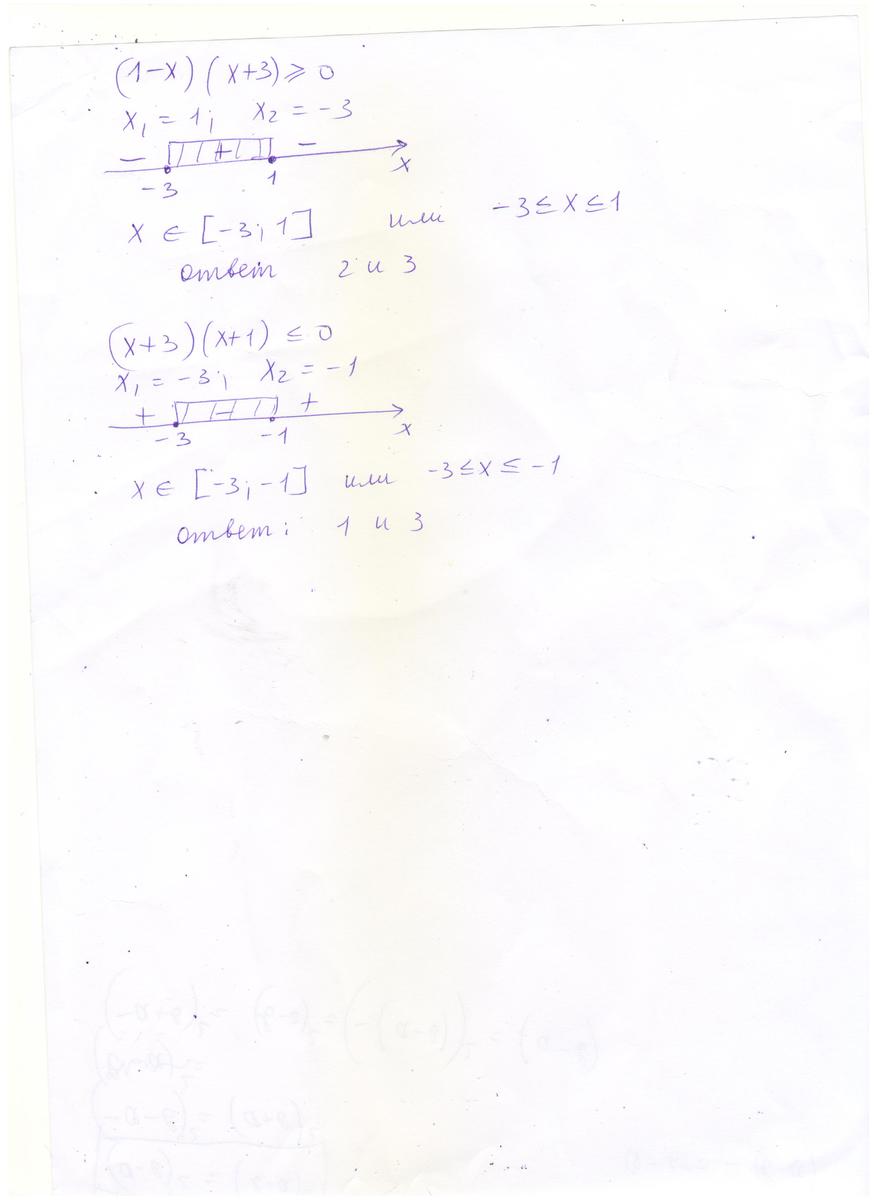 (1-x)(x+3) ≥ 0
x₁ = 1; x₂ = -3
- + -
-3 1 x
x ∈ [-3; 1] или -3 ≤ x ≤ 1
ответ 2 и 3
(x+3)(x+1) ≤ 0
x₁ = -3; x₂ = -1
+ - +
-3 -1 x
x ∈ [-3; -1] или -3 ≤ x ≤ -1
ответ: 1 и 3